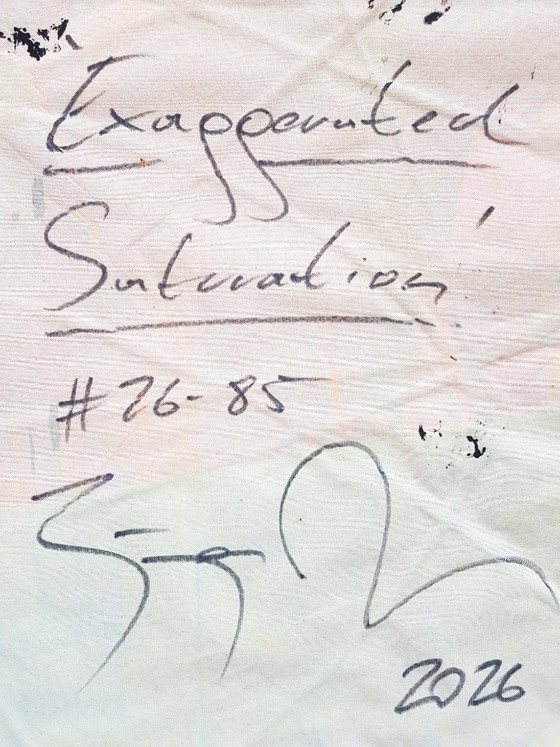 Exaggerated
Saturation
#26-85
2026